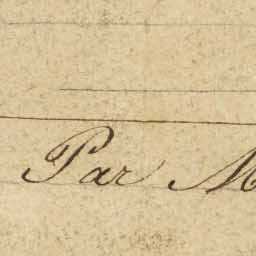 Par M